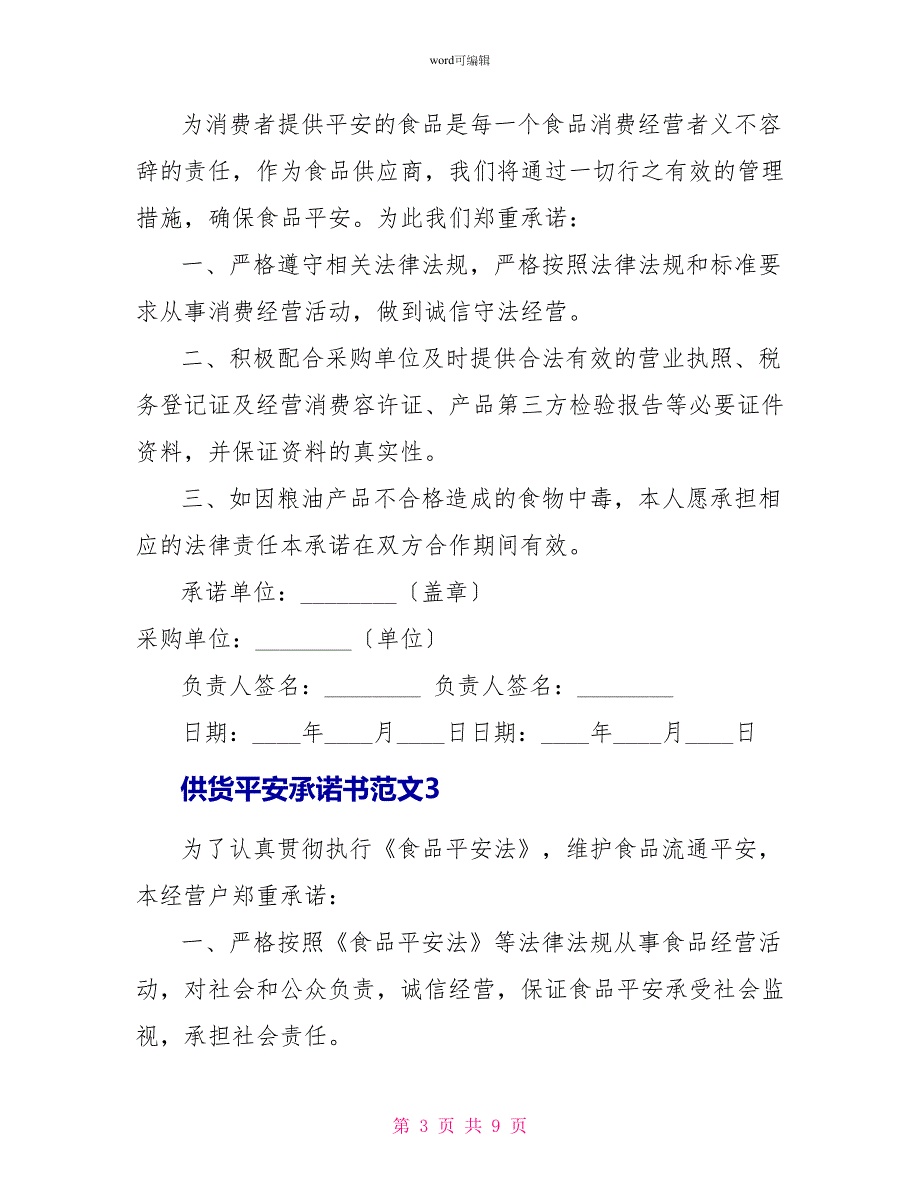 word可编辑
为消费者提供平安的食品是每一个食品消费经营者义不容
辞的责任，作为食品供应商，我们将通过一切行之有效的管理
措施，确保食品平安。为此我们郑重承诺：
一、严格遵守相关法律法规，严格按照法律法规和标准要
求从事消费经营活动，做到诚信守法经营。
二、积极配合采购单位及时提供合法有效的营业执照、税
务登记证及经营消费容许证、产品第三方检验报告等必要证件
资料，并保证资料的真实性。
三、如因粮油产品不合格造成的食物中毒，本人愿承担相
应的法律责任本承诺在双方合作期间有效。
承诺单位：________〔盖章〕
采购单位：________〔单位〕
负责人签名：________ 负责人签名：________
日期：____年____月____日日期：____年____月____日
供货平安承诺书范文3
为了认真贯彻执行《食品平安法》，维护食品流通平安，
本经营户郑重承诺：
一、严格按照《食品平安法》等法律法规从事食品经营活
动，对社会和公众负责，诚信经营，保证食品平安承受社会监
视，承担社会责任。
第 3 页 共 9 页